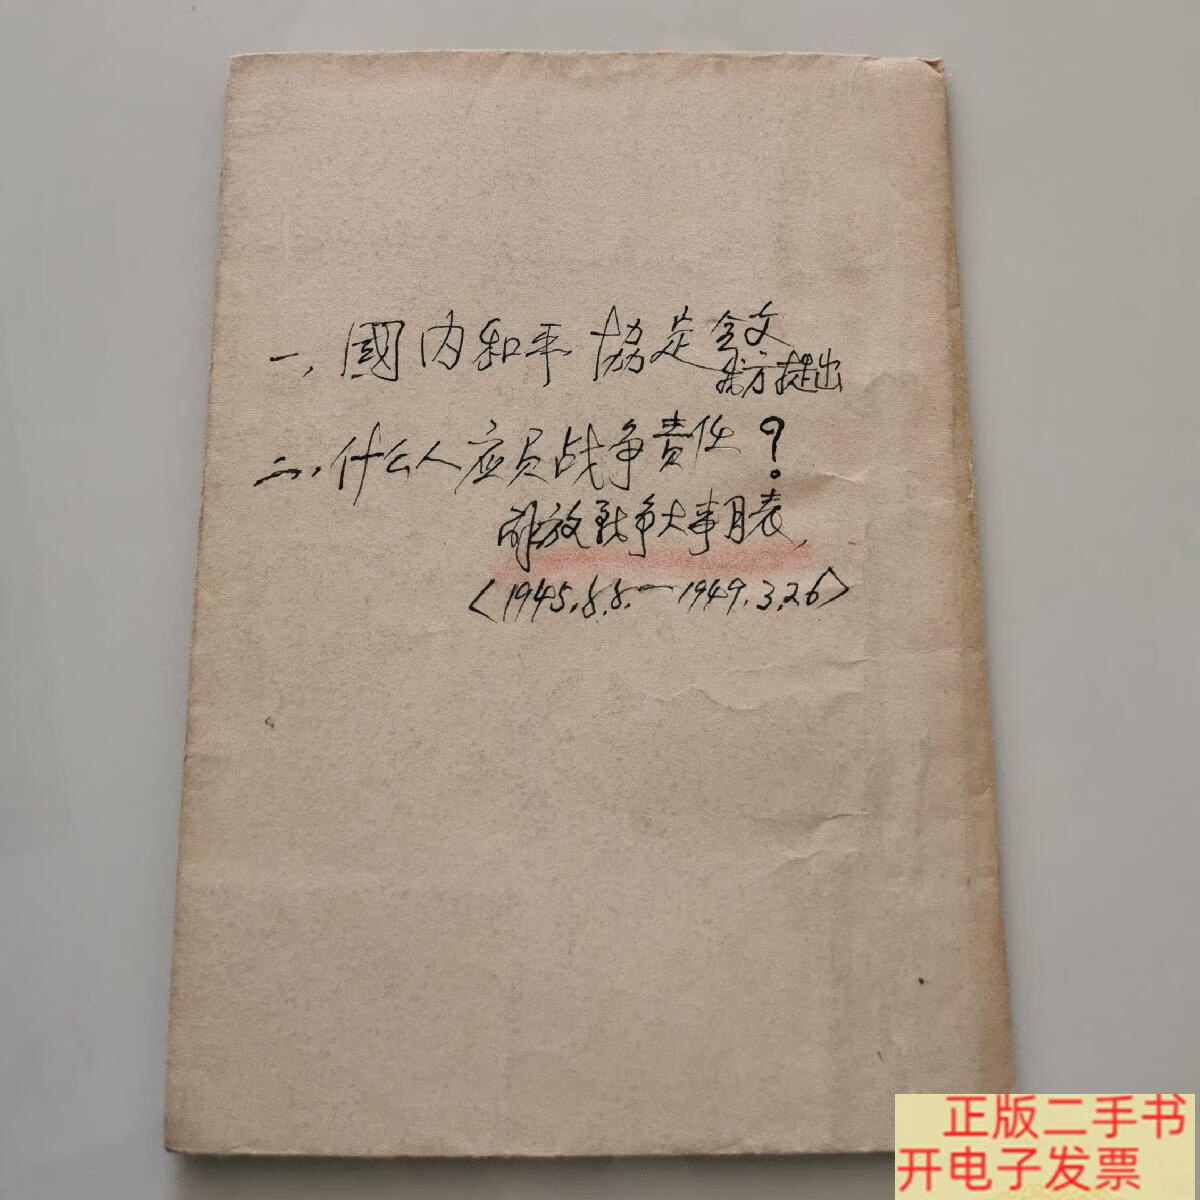 一、國内和平協定全文
我方提出
二、什么人应负战争責任？
解放戰争大事月表，
<1945.8.8.—1949.3.26>
正版二手书
开电子发票